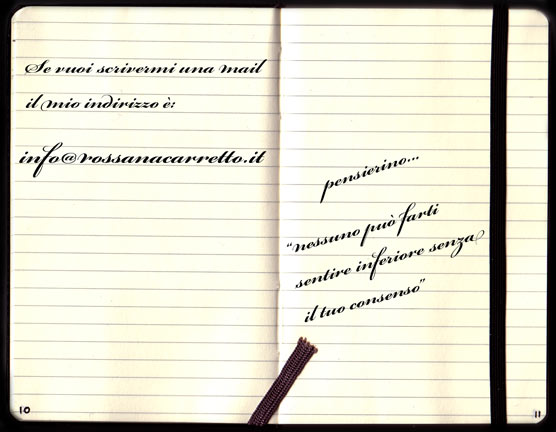 Se vuoi scrivermi una mail
il mio indirizzo è:
info@rossanacarretto.it
10
pensierino...
"nessuno può farti
sentire inferiore senza
il tuo consenso"
11